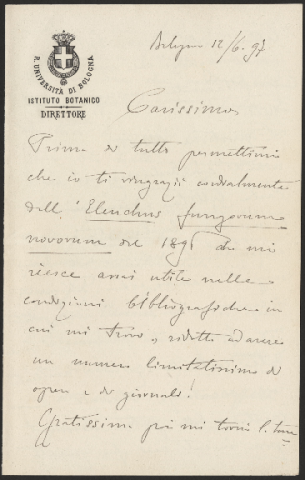 R. UNIVERSITÀ DI BOLOGNA
ISTITUTO BOTANICO
DIRETTORE
Bologna 12/6. 97
Carissimo,
Prima di tutto permettimi
che io ti ringrazi cordialmente
dell' Elenchus fungorum
novorum del 189 che mi
riesce assai utile nelle
condizioni bibliografiche in
cui mi trovo, ridotto ad avere
un numero limitatissimo di
opere e di giornali!
Gratissima poi mi torna l.